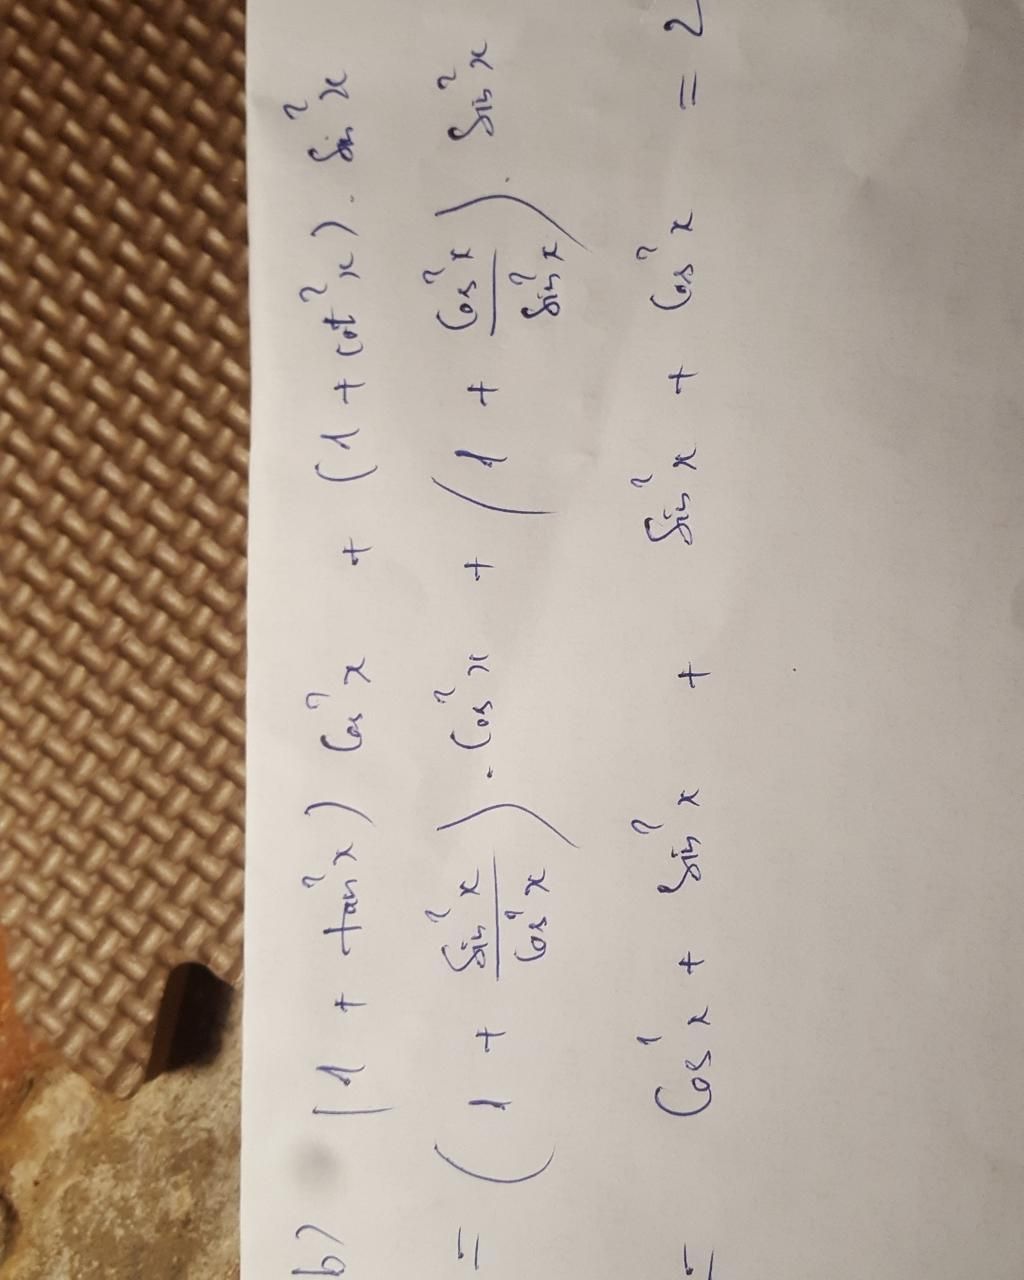 b) (1 + tan²x) cos²x + (1 + cot²x) . sin²x
= (1 + sin²x/cos²x) . cos²x + (1 + cos²x/sin²x) . sin²x
= cos²x + sin²x + sin²x + cos²x = 2